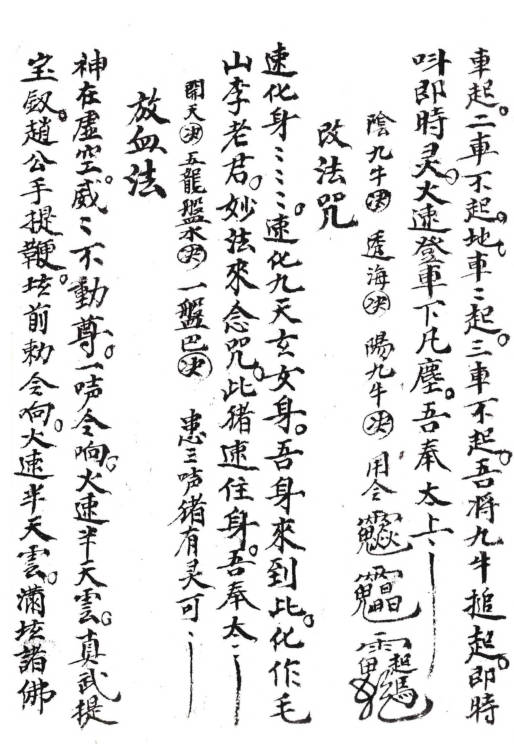 車起。二車不起。地車〻起。三車不起。吾将九牛搥起。即時
呌即時灵。火速登車下凡塵。吾奉太上〻
陰九牛決 透海決 陽九牛決 用令
改法咒
速化身〻〻〻。速化九天玄女身。吾身來到此。化作毛
山李老君。妙法來念咒。此猪速住身。吾奉太〻
開天決 五龍盤水決 一盤巴決 患三声猪有灵可〻
放血法
神在虛空。威〻不動尊。一声令响。火速半天雲。真武提
宝劔。趙公手提鞭。坛前勅令响。火速半天雲。滿坛諸佛